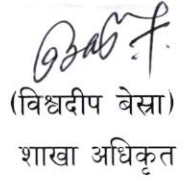 (विश्वदीप बेस्रा)
शाखा अधिकृत